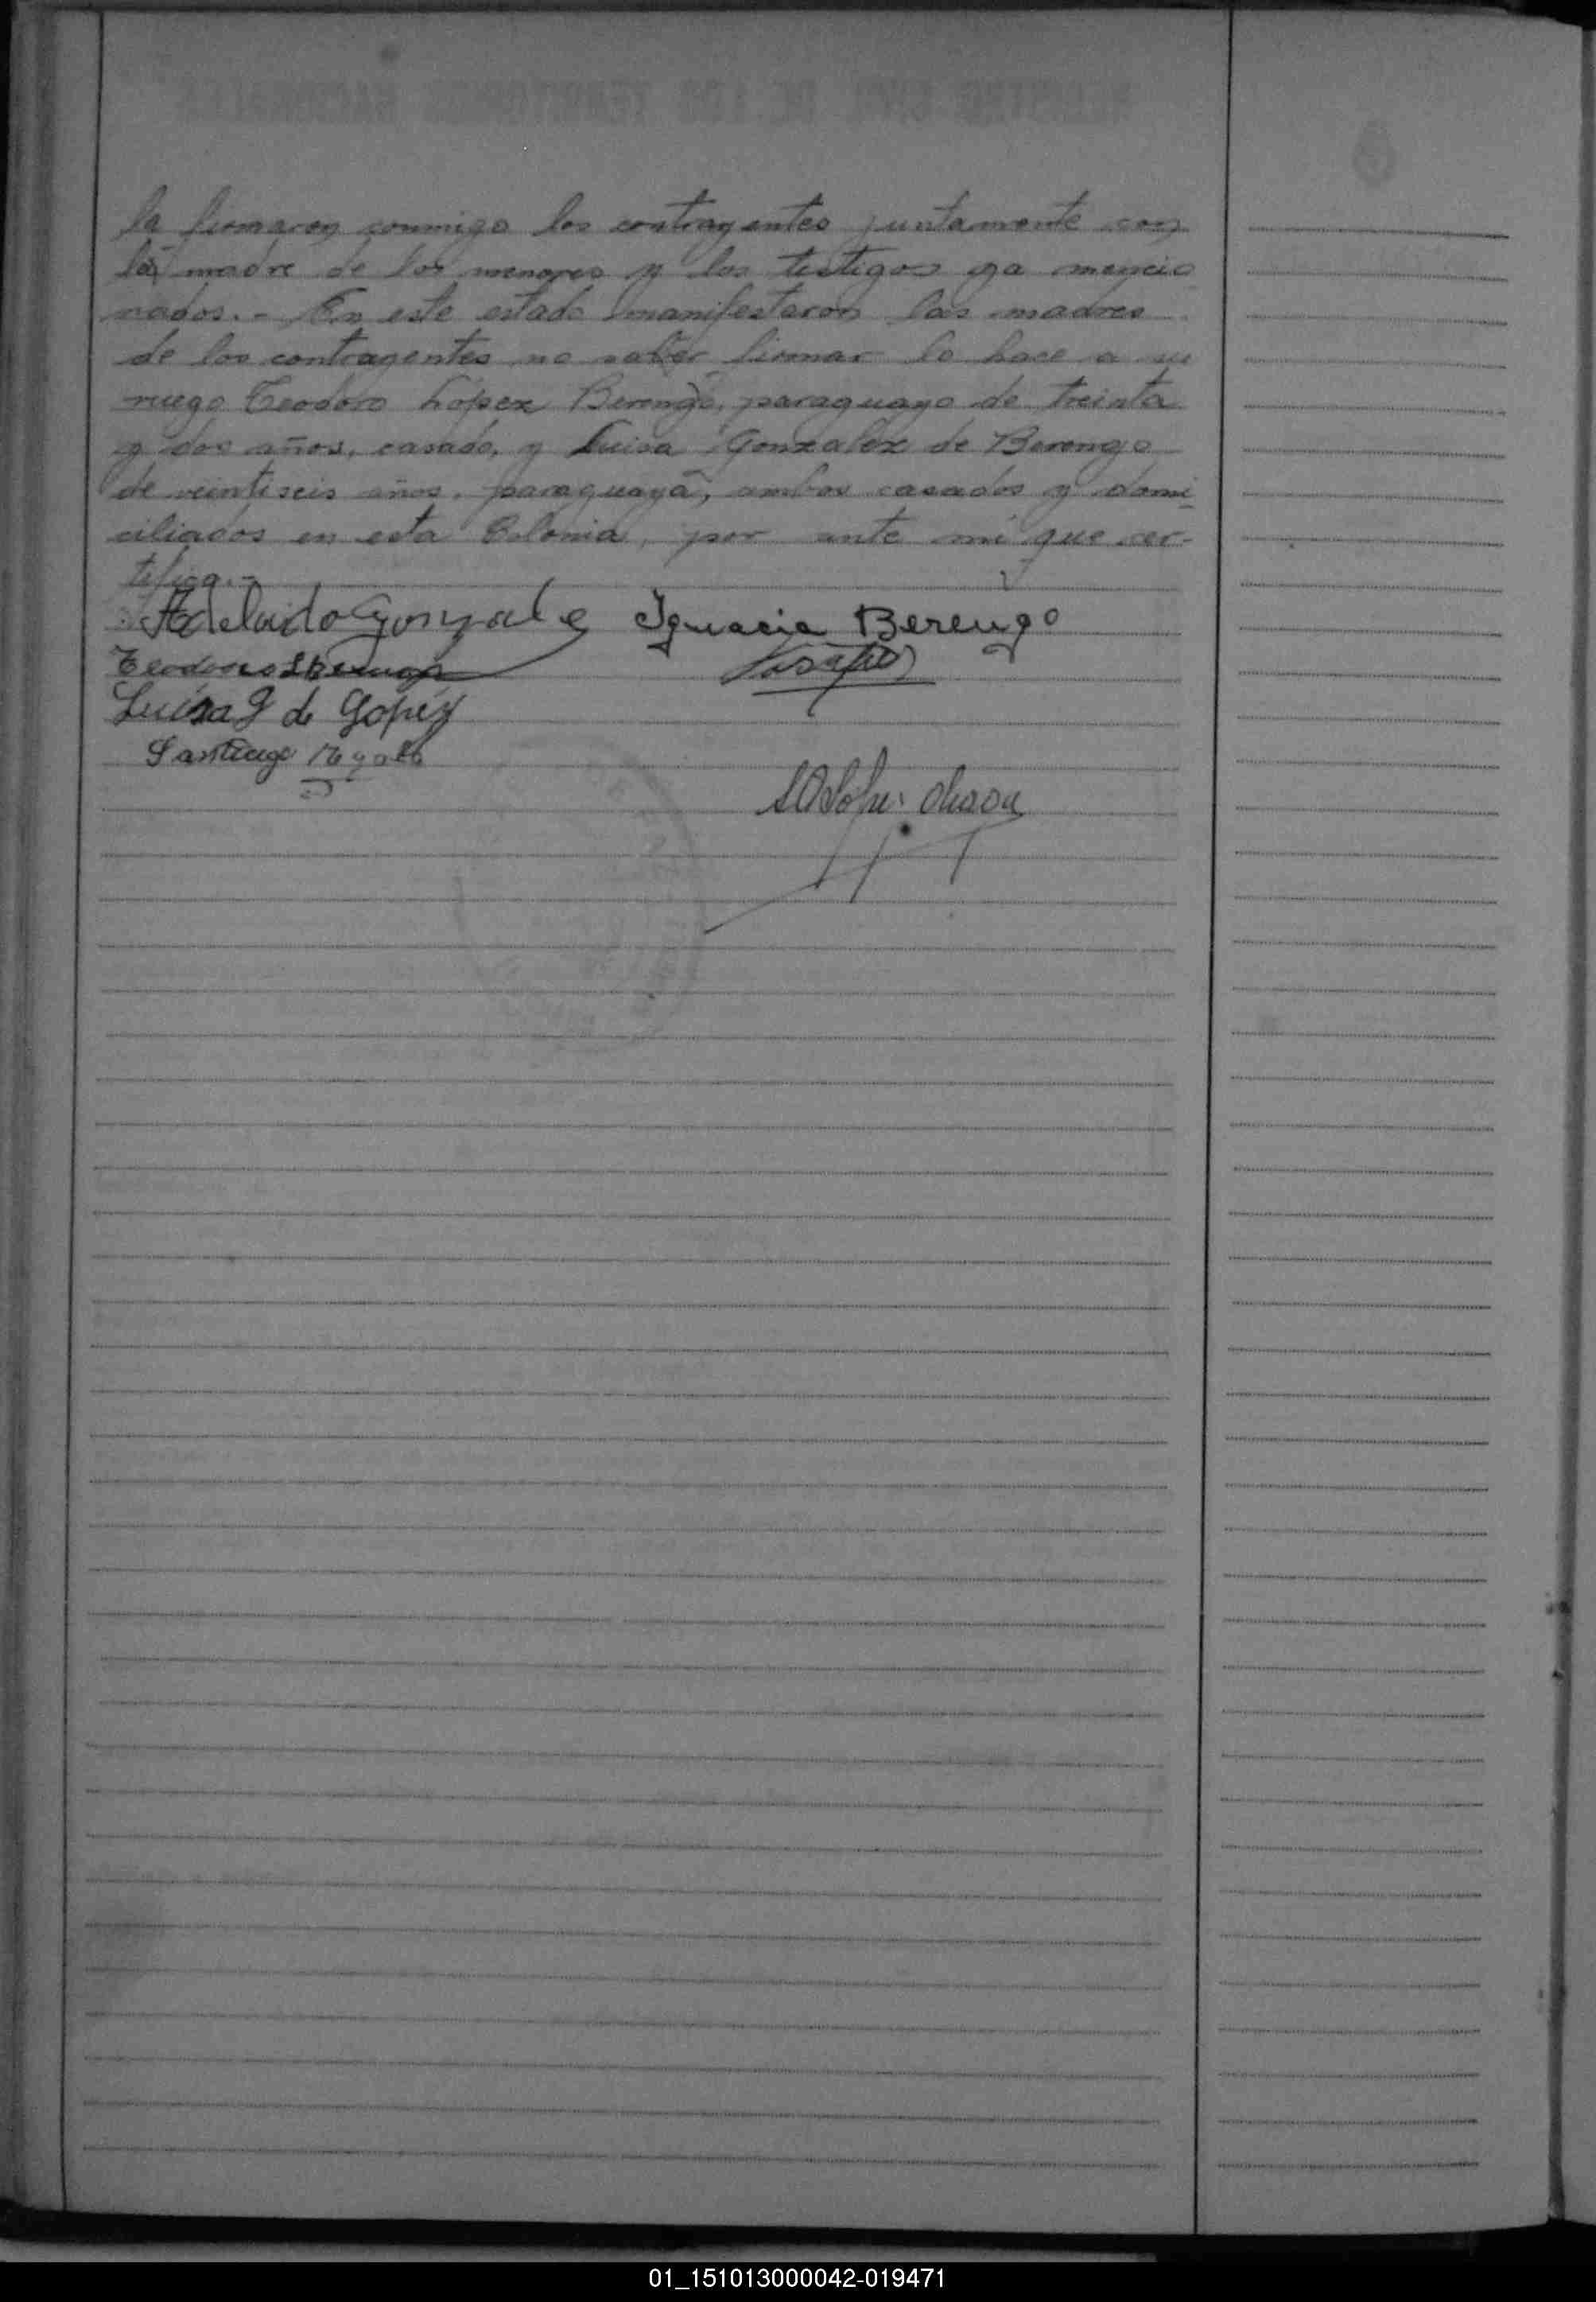 la firmaron conmigo los contrayentes juntamente con
la madre de los menores y los testigos ya mencio
nados. - En este estado manifestaron las madres
de los contrayentes no saber firmar lo hace a su
ruego Teodoro López Berengo, paraguayo de treinta
y dos años, casado, y Luisa Gonzalez de Berengo
de veintiseis años, paraguaya, ambos casados y domi
ciliados en esta Colonia, por ante mí que cer-
tifica.-
Adelaido Gonzale Ignacia Berengo
Teodoro
Luisa G de Gopez
Santiago
01_151013000042-019471